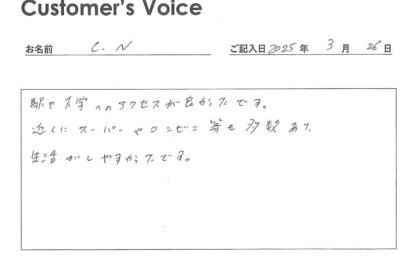 Customer's Voice
お名前 C.N ご記入日 2025年 3月 26日
駅や大学へのアクセスが良かったです。
近くにスーパーやコンビニ等も多数あり、
生活がしやすかったです。